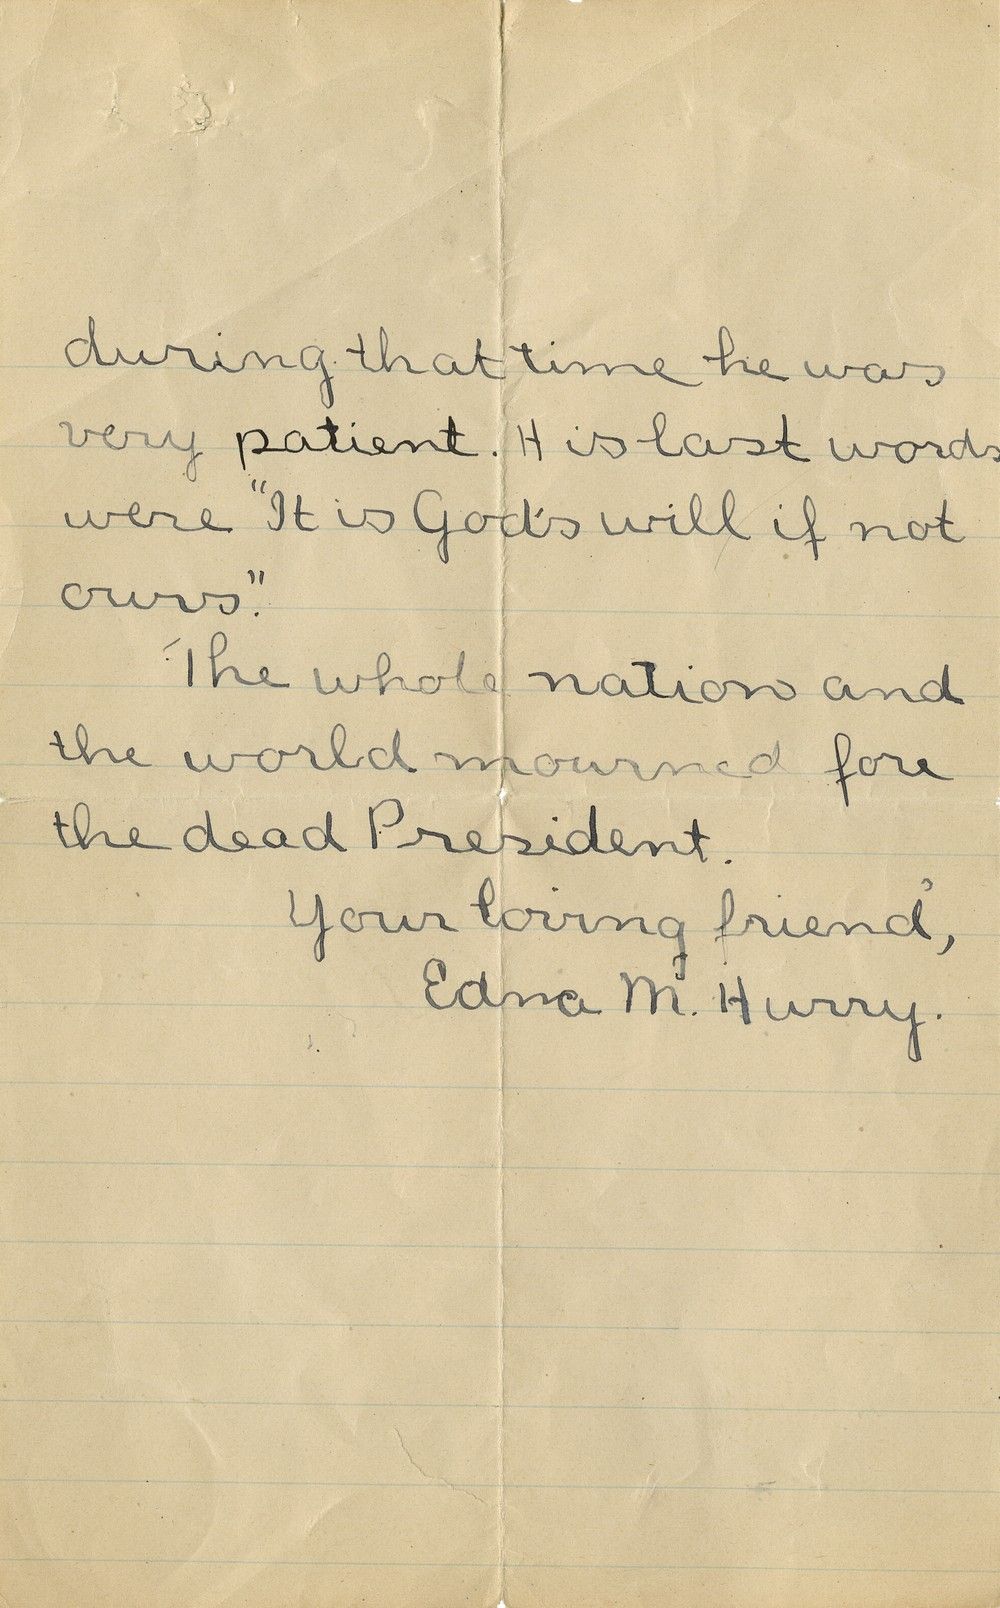 during that time he was
very patient. His last words
were "It is God's will if not
ours".
The whole nation and
the world mourned fore
the dead President.
Your loving friend,
Edna M. Hurry.